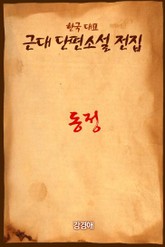 한국 대표
근대 단편소설 전집
동정
강경애